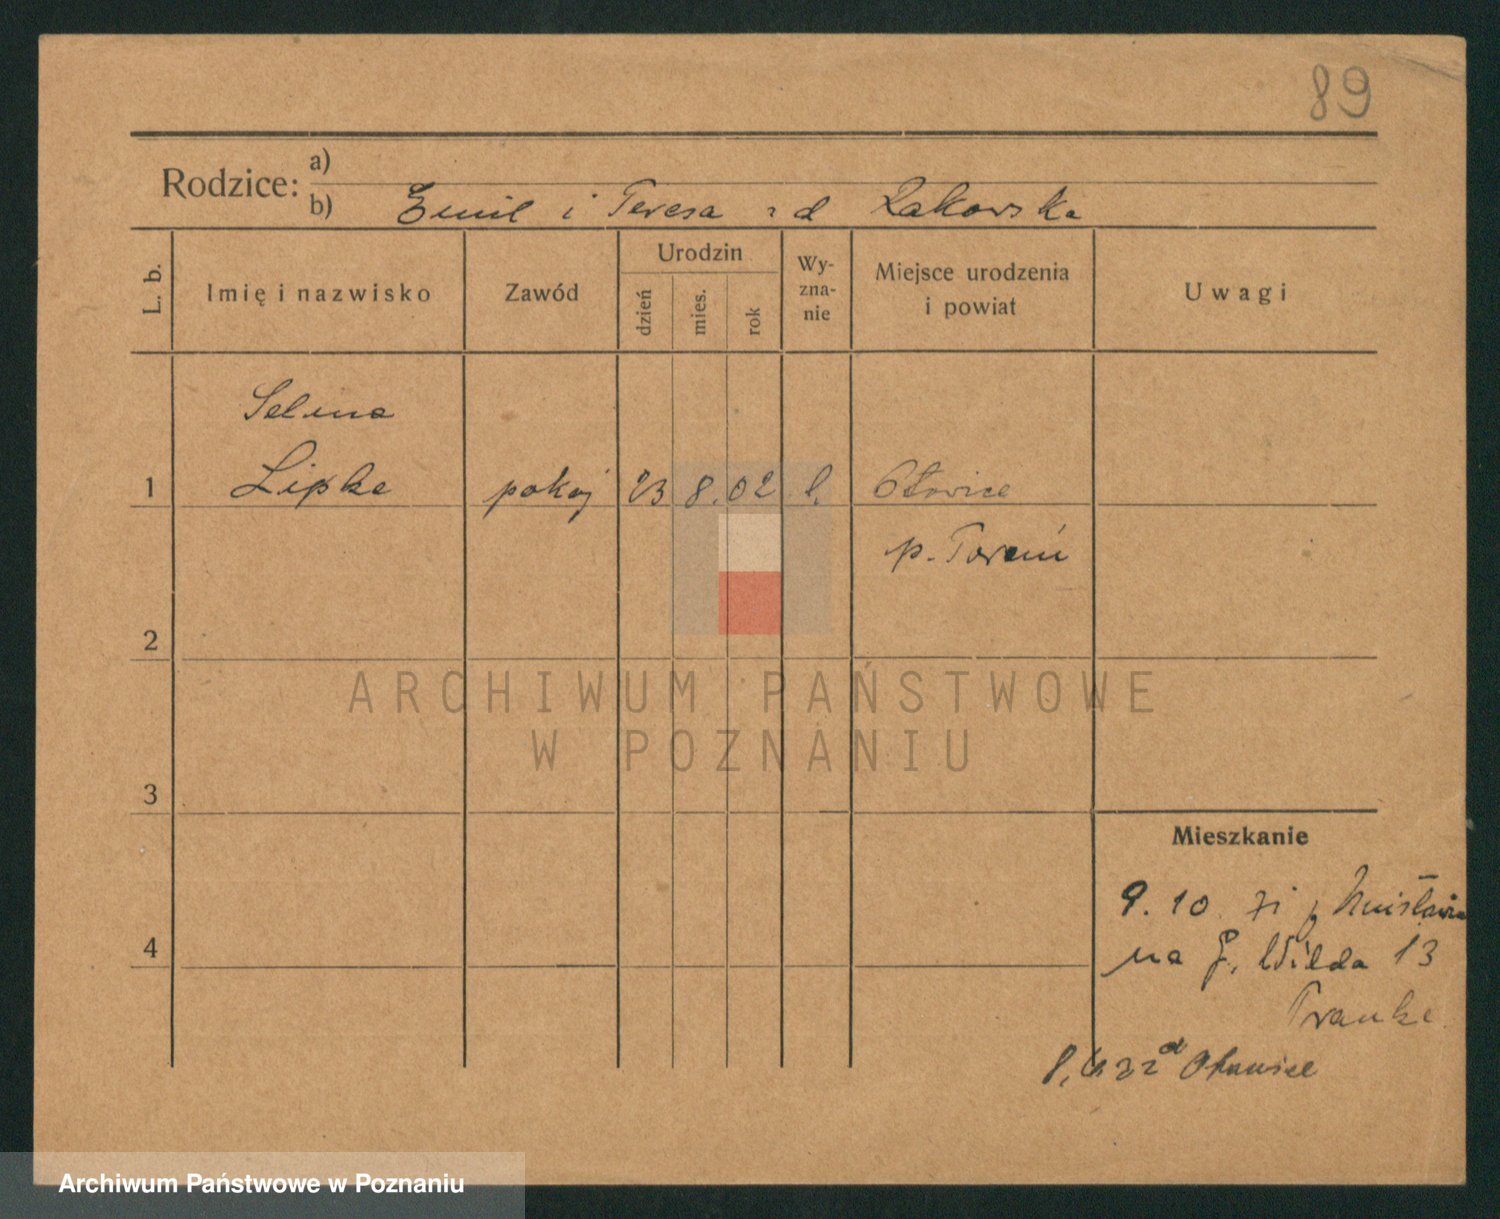 89
Rodzice:
a)
b) Emil i Teresa z d Rakowska
L. b.
Imię i nazwisko
Zawód
Urodzin
dzień
mies.
rok
Wy-
zna-
nie
Miejsce urodzenia
i powiat
Uwagi
Selma
1 Lipke pokoj 23 8. 02
p. Toruń
2
3
4
Mieszkanie
9. 10. 31
na G. Wilda 13
Franke
ARCHIWUM PAŃSTWOWE
W POZNANIU
Archiwum Państwowe w Poznaniu